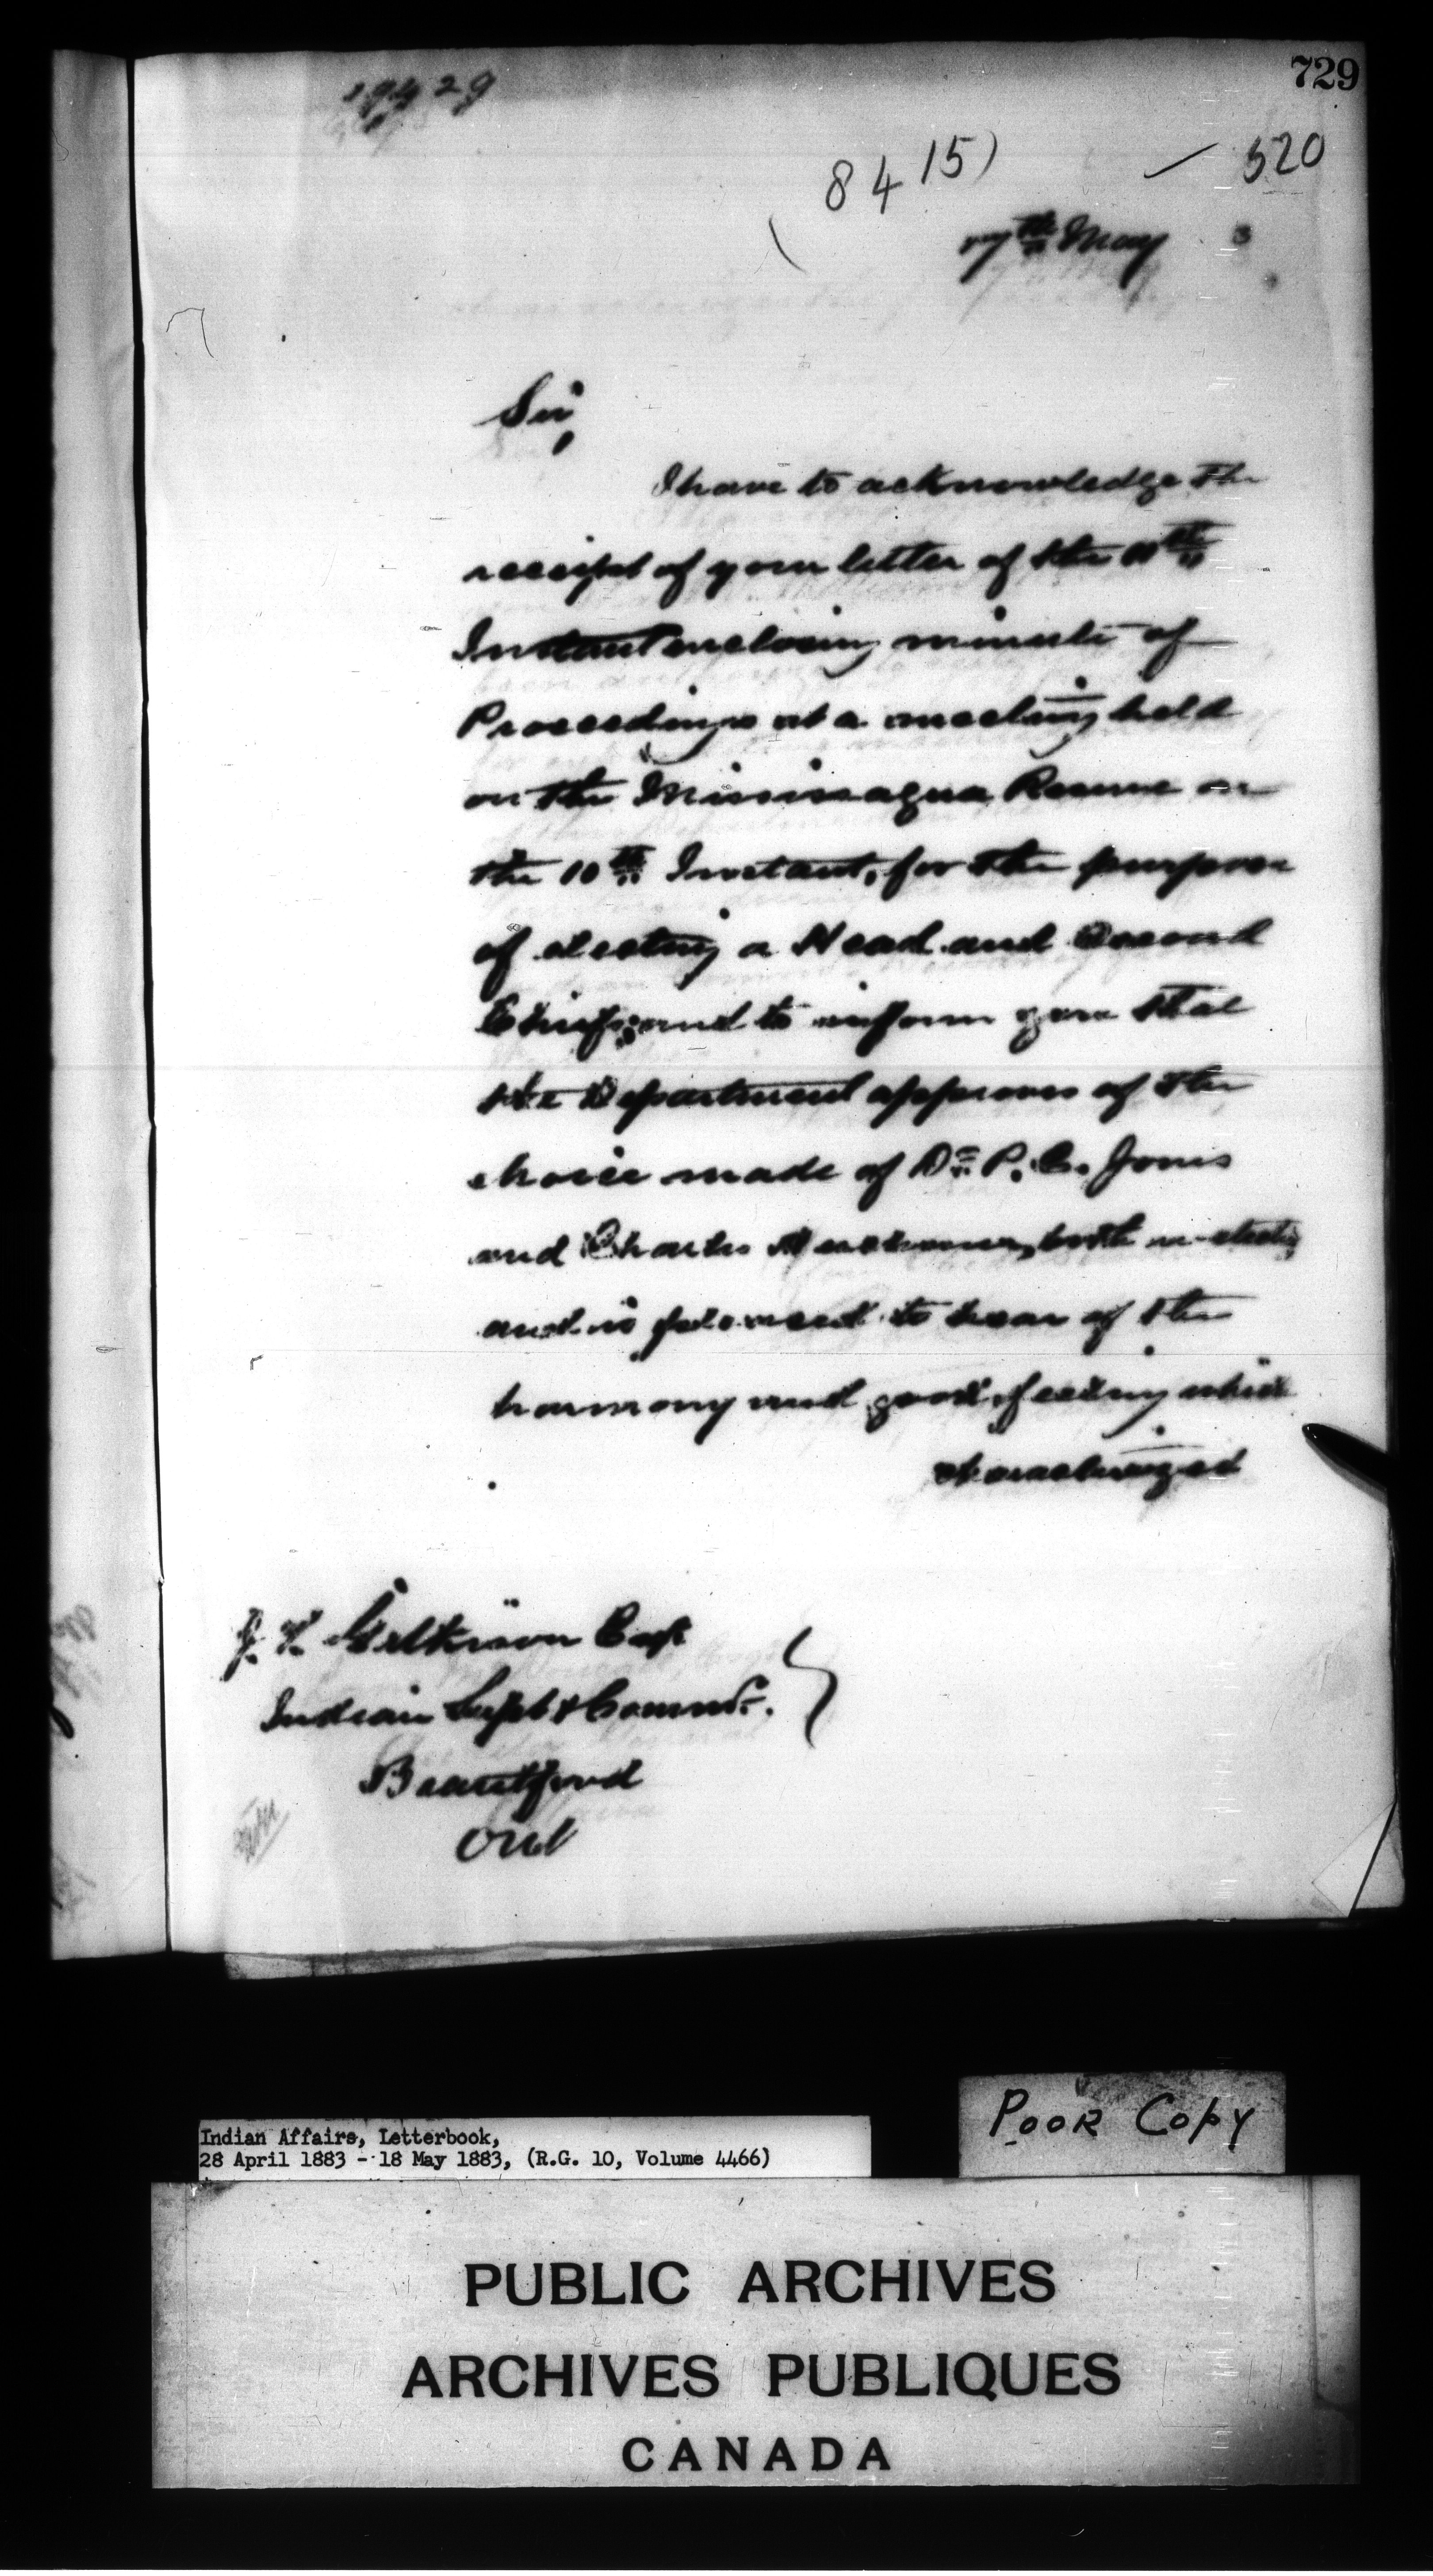 729
19429
8415)
520
17th May 3
Sir,
I have to acknowledge the
receipt of your letter of the 11th
Instant enclosing minute of
Proceedings at a meeting held
on the Mississagua Reserve on
the 10th Instant, for the purpose
of electing a Head and Second
Chief; and to inform you that
the Department approves of the
choice made of Dr. P. E. Jones
and Charles Herkimer, both re-electing
and is pleased to hear of the
harmony and good feeling which
characterized
J. T. Gilkison Esq
Indian Supt & Commr.
Brantford
Ont
Poor Copy
Indian Affairs, Letterbook,
28 April 1883 - 18 May 1883, (R.G. 10, Volume 4466)
PUBLIC ARCHIVES
ARCHIVES PUBLIQUES
CANADA